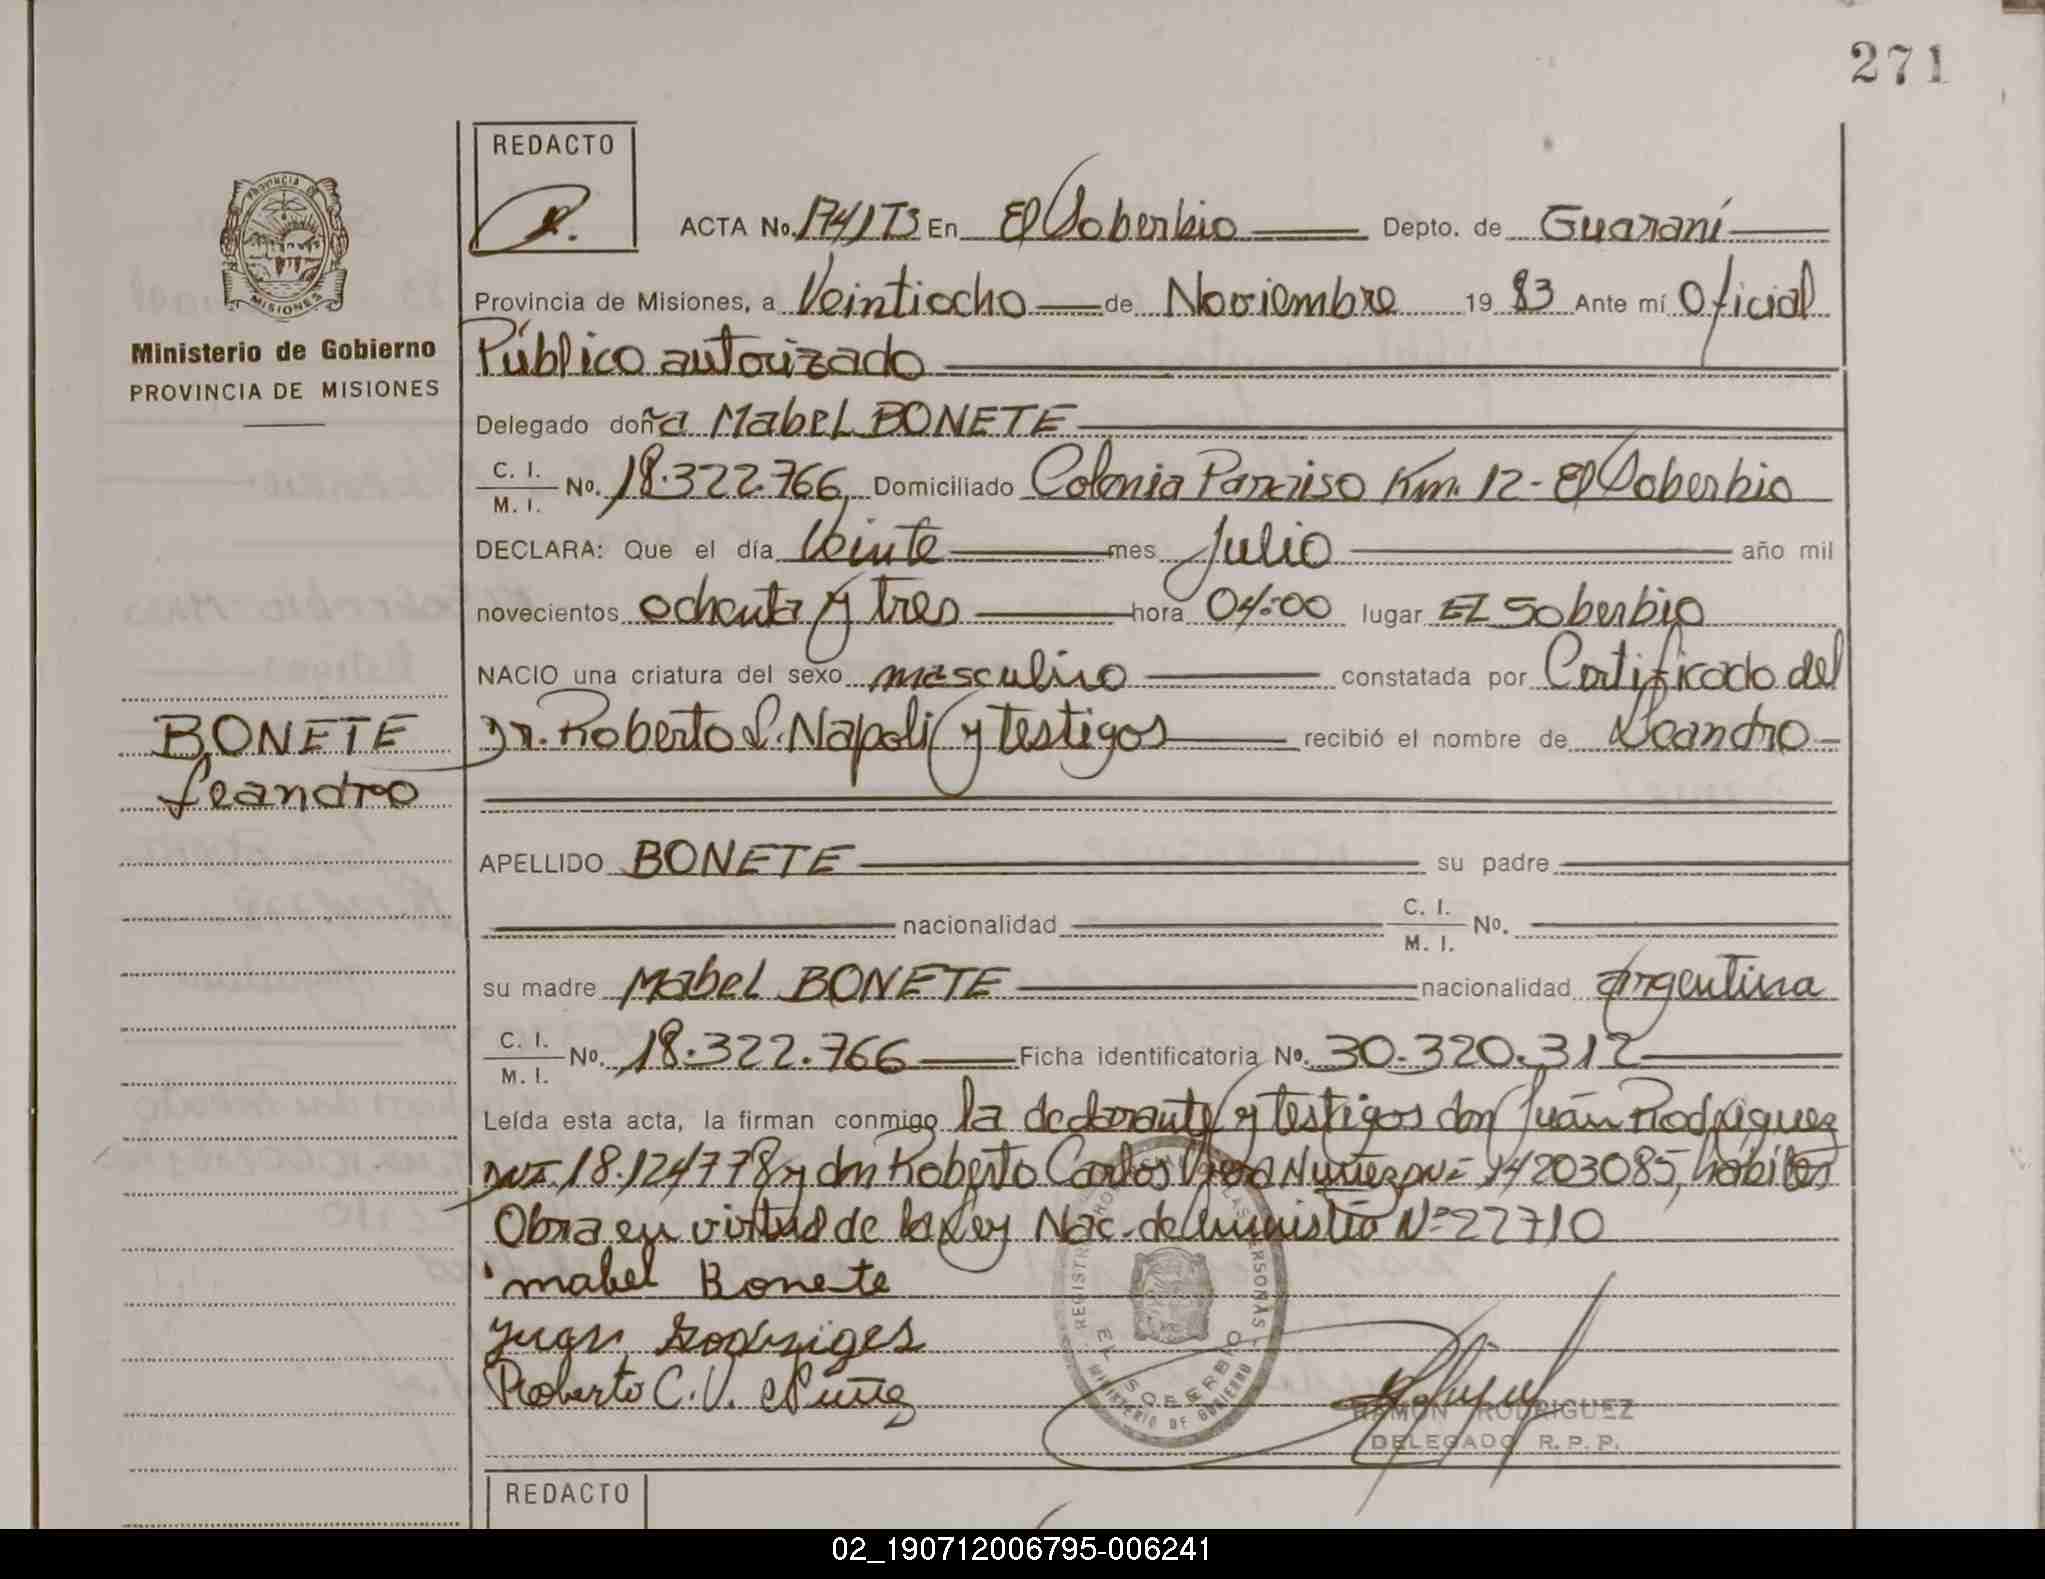 271
REDACTO
PROVINCIA DE MISIONES
ACTA No. 174/T3 En El Soberbio Depto. de Guaraní
Provincia de Misiones, a Veintiocho de Noviembre 1983 Ante mí Oficial
Público autorizado
Ministerio de Gobierno
PROVINCIA DE MISIONES
Delegado doña Mabel BONETE
C. I. / M. I. No. 18.322.766, Domiciliado Colonia Paraiso Km. 12 - El Soberbio
DECLARA: Que el día Veinte mes Julio año mil
novecientos ochenta y tres hora 04:00 lugar EL Soberbio
NACIO una criatura del sexo masculino constatada por Certificado del
Dr. Roberto L. Napoli y testigos recibió el nombre de Leandro
BONETE
Leandro
APELLIDO BONETE su padre
nacionalidad C. I. / M. I. No.
su madre Mabel BONETE nacionalidad Argentina
C. I. / M. I. No. 18.322.766 Ficha identificatoria No. 30.320.312
Leída esta acta, la firman conmigo la declarante y testigos don Juán Rodriguez
DNI. 18.124778 y don Roberto Carlos Nuñez DNI 14203085, hábiles
Obra en virtud de la Ley Nac. de Amnistia Nº 22710
mabel Bonete
Juan Rodriges
Roberto C. V. Nuñez
REGISTRO PROVINCIAL DE LAS PERSONAS
EL SOBERBIO
MINISTERIO DE GOBIERNO
RAMON RODRIGUEZ
DELEGADO R. P. P.
REDACTO
02_190712006795-006241